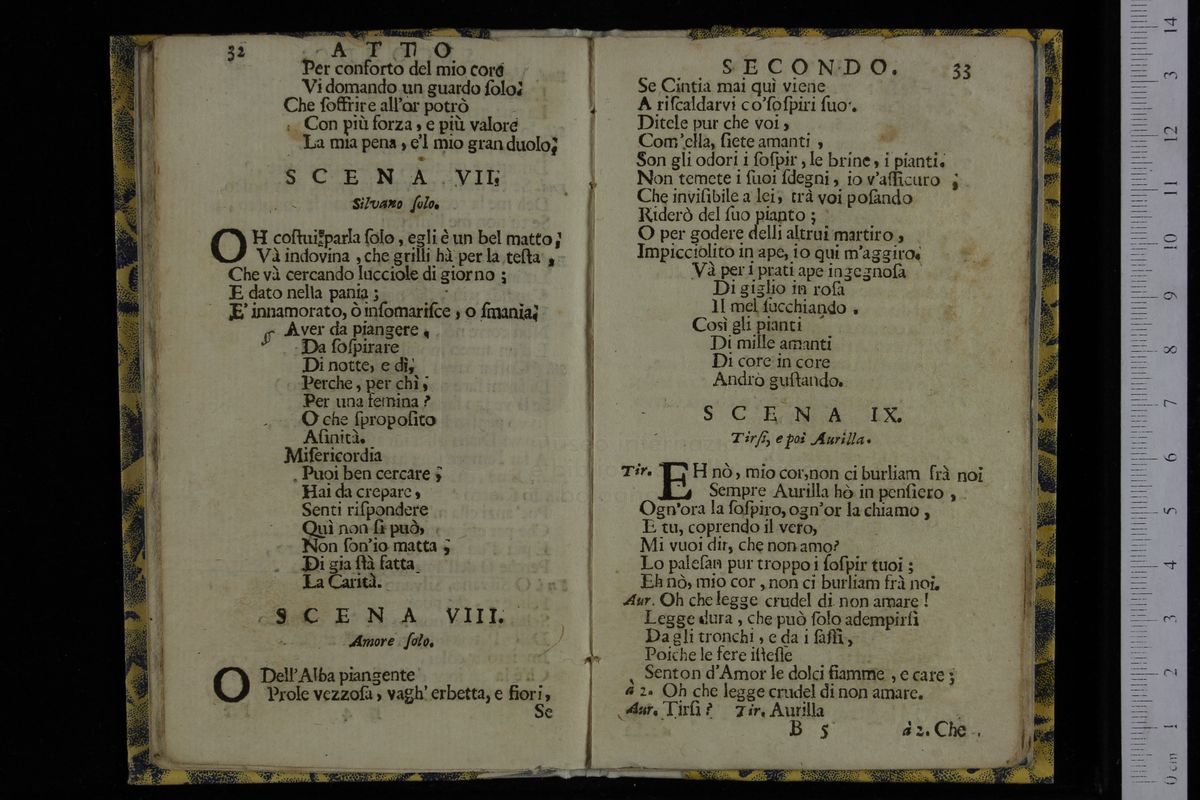 32 ATTO
Per conforto del mio core
Vi domando un guardo ſolo:
Che ſoffrire all'or potrò
Con più forza, e più valore
La mia pena, e'l mio gran duolo;
SCENA VII.
Silvano ſolo.
OH coſtui parla ſolo, egli è un bel matto;
Và indovina, che grilli hà per la teſta,
Che và cercando lucciole di giorno;
E dato nella pania;
E' innamorato, ò inſomariſce, o ſmania;
Aver da piangere,
Da ſoſpirare
Di notte, e dì,
Perche, per chì,
Per una femina?
O che ſpropoſito
Aſinità.
Miſericordia
Puoi ben cercare;
Hai da crepare,
Senti riſpondere
Quì non ſi può,
Non ſon'io matta;
Di gia ſtà fatta
La Carità.
SCENA VIII.
Amore ſolo.
O Dell'Alba piangente
Prole vezzoſa, vagh'erbetta, e fiori,
Se
SECONDO. 33
Se Cintia mai quì viene
A riſcaldarvi co'ſoſpiri ſuo.
Ditele pur che voi,
Com'ella, ſiete amanti,
Son gli odori i ſoſpir, le brine, i pianti.
Non temete i ſuoi ſdegni, io v'aſſicuro;
Che inviſibile a lei, trà voi poſando
Riderò del ſuo pianto;
O per godere delli altrui martiro,
Impicciolito in ape, io qui m'aggiro.
Và per i prati ape ingegnoſa
Di giglio in roſa
Il mel ſucchiando.
Così gli pianti
Di mille amanti
Di core in core
Andrò guſtando.
SCENA IX.
Tirſi, e poi Aurilla.
Tir. EH nò, mio cor, non ci burliam frà noi
Sempre Aurilla hò in penſiero,
Ogn'ora la ſoſpiro, ogn'or la chiamo,
E tu, coprendo il vero,
Mi vuoi dir, che non amo?
Lo paleſan pur troppo i ſoſpir tuoi;
Eh nò, mio cor, non ci burliam frà noi.
Aur. Oh che legge crudel di non amare!
Legge dura, che può ſolo adempirſi
Da gli tronchi, e da i ſaſſi,
Poiche le fere iſteſſe
Senton d'Amor le dolci fiamme, e care;
à 2. Oh che legge crudel di non amare.
Aur. Tirſi? Tir. Aurilla
B 5 à 2. Che
0 cm 1 2 3 4 5 6 7 8 9 10 11 12 3 14